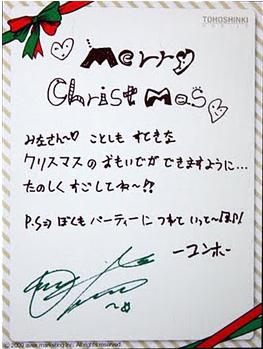 TOHOSHINKI
Merry
Christmas
みなさん〜♡ ことしも すてきな
クリスマスの おもいでが できますように...
たのしく すごしてね〜!!
P.S⇒ ぼくも パーティーに つれて いって〜
ーユンホー
© 2009 avex marketing Inc. All rights reserved.